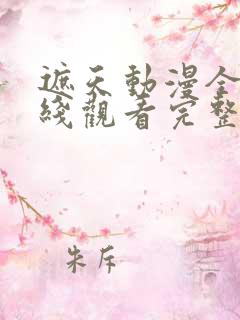 遮天動漫全
綫觀看完整
朱斥